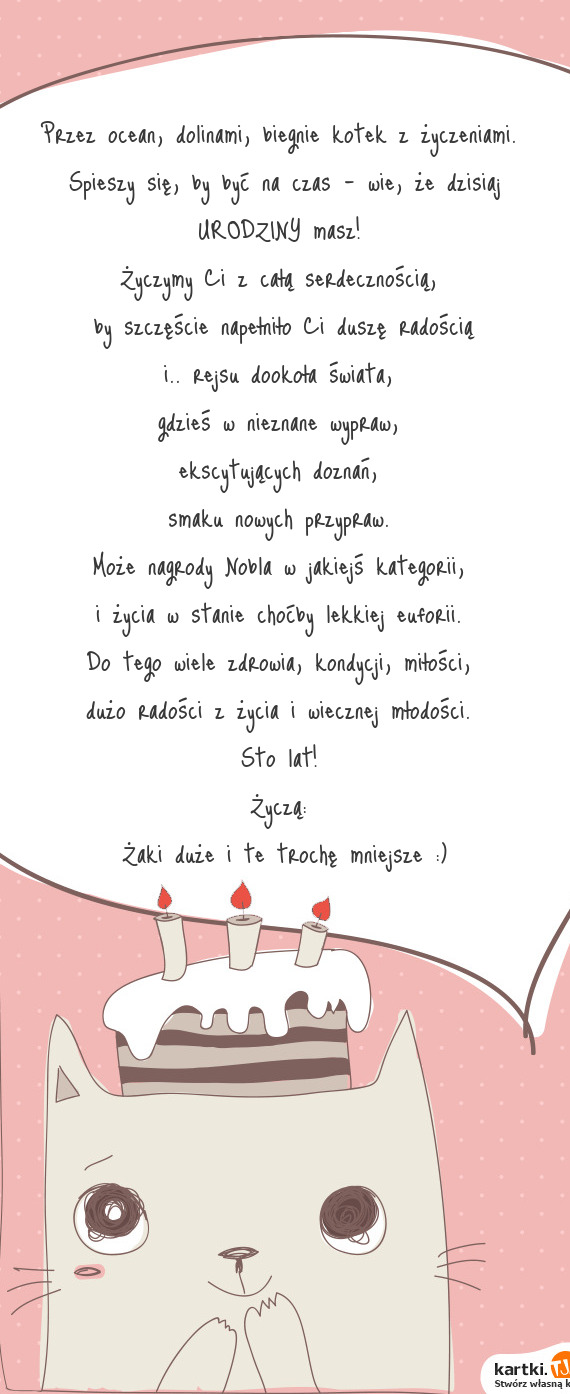 Przez ocean, dolinami, biegnie kotek z życzeniami.
Spieszy się, by być na czas - wie, że dzisiaj
URODZINY masz!
Życzymy Ci z całą serdecznością,
by szczęście napełniło Ci duszę radością
i.. rejsu dookoła świata,
gdzieś w nieznane wypraw,
ekscytujących doznań,
smaku nowych przypraw.
Może nagrody Nobla w jakiejś kategorii,
i życia w stanie choćby lekkiej euforii.
Do tego wiele zdrowia, kondycji, miłości,
dużo radości z życia i wiecznej młodości.
Sto lat!
Życzą:
Żaki duże i te trochę mniejsze :)
kartki.TJ
Stwórz własną k